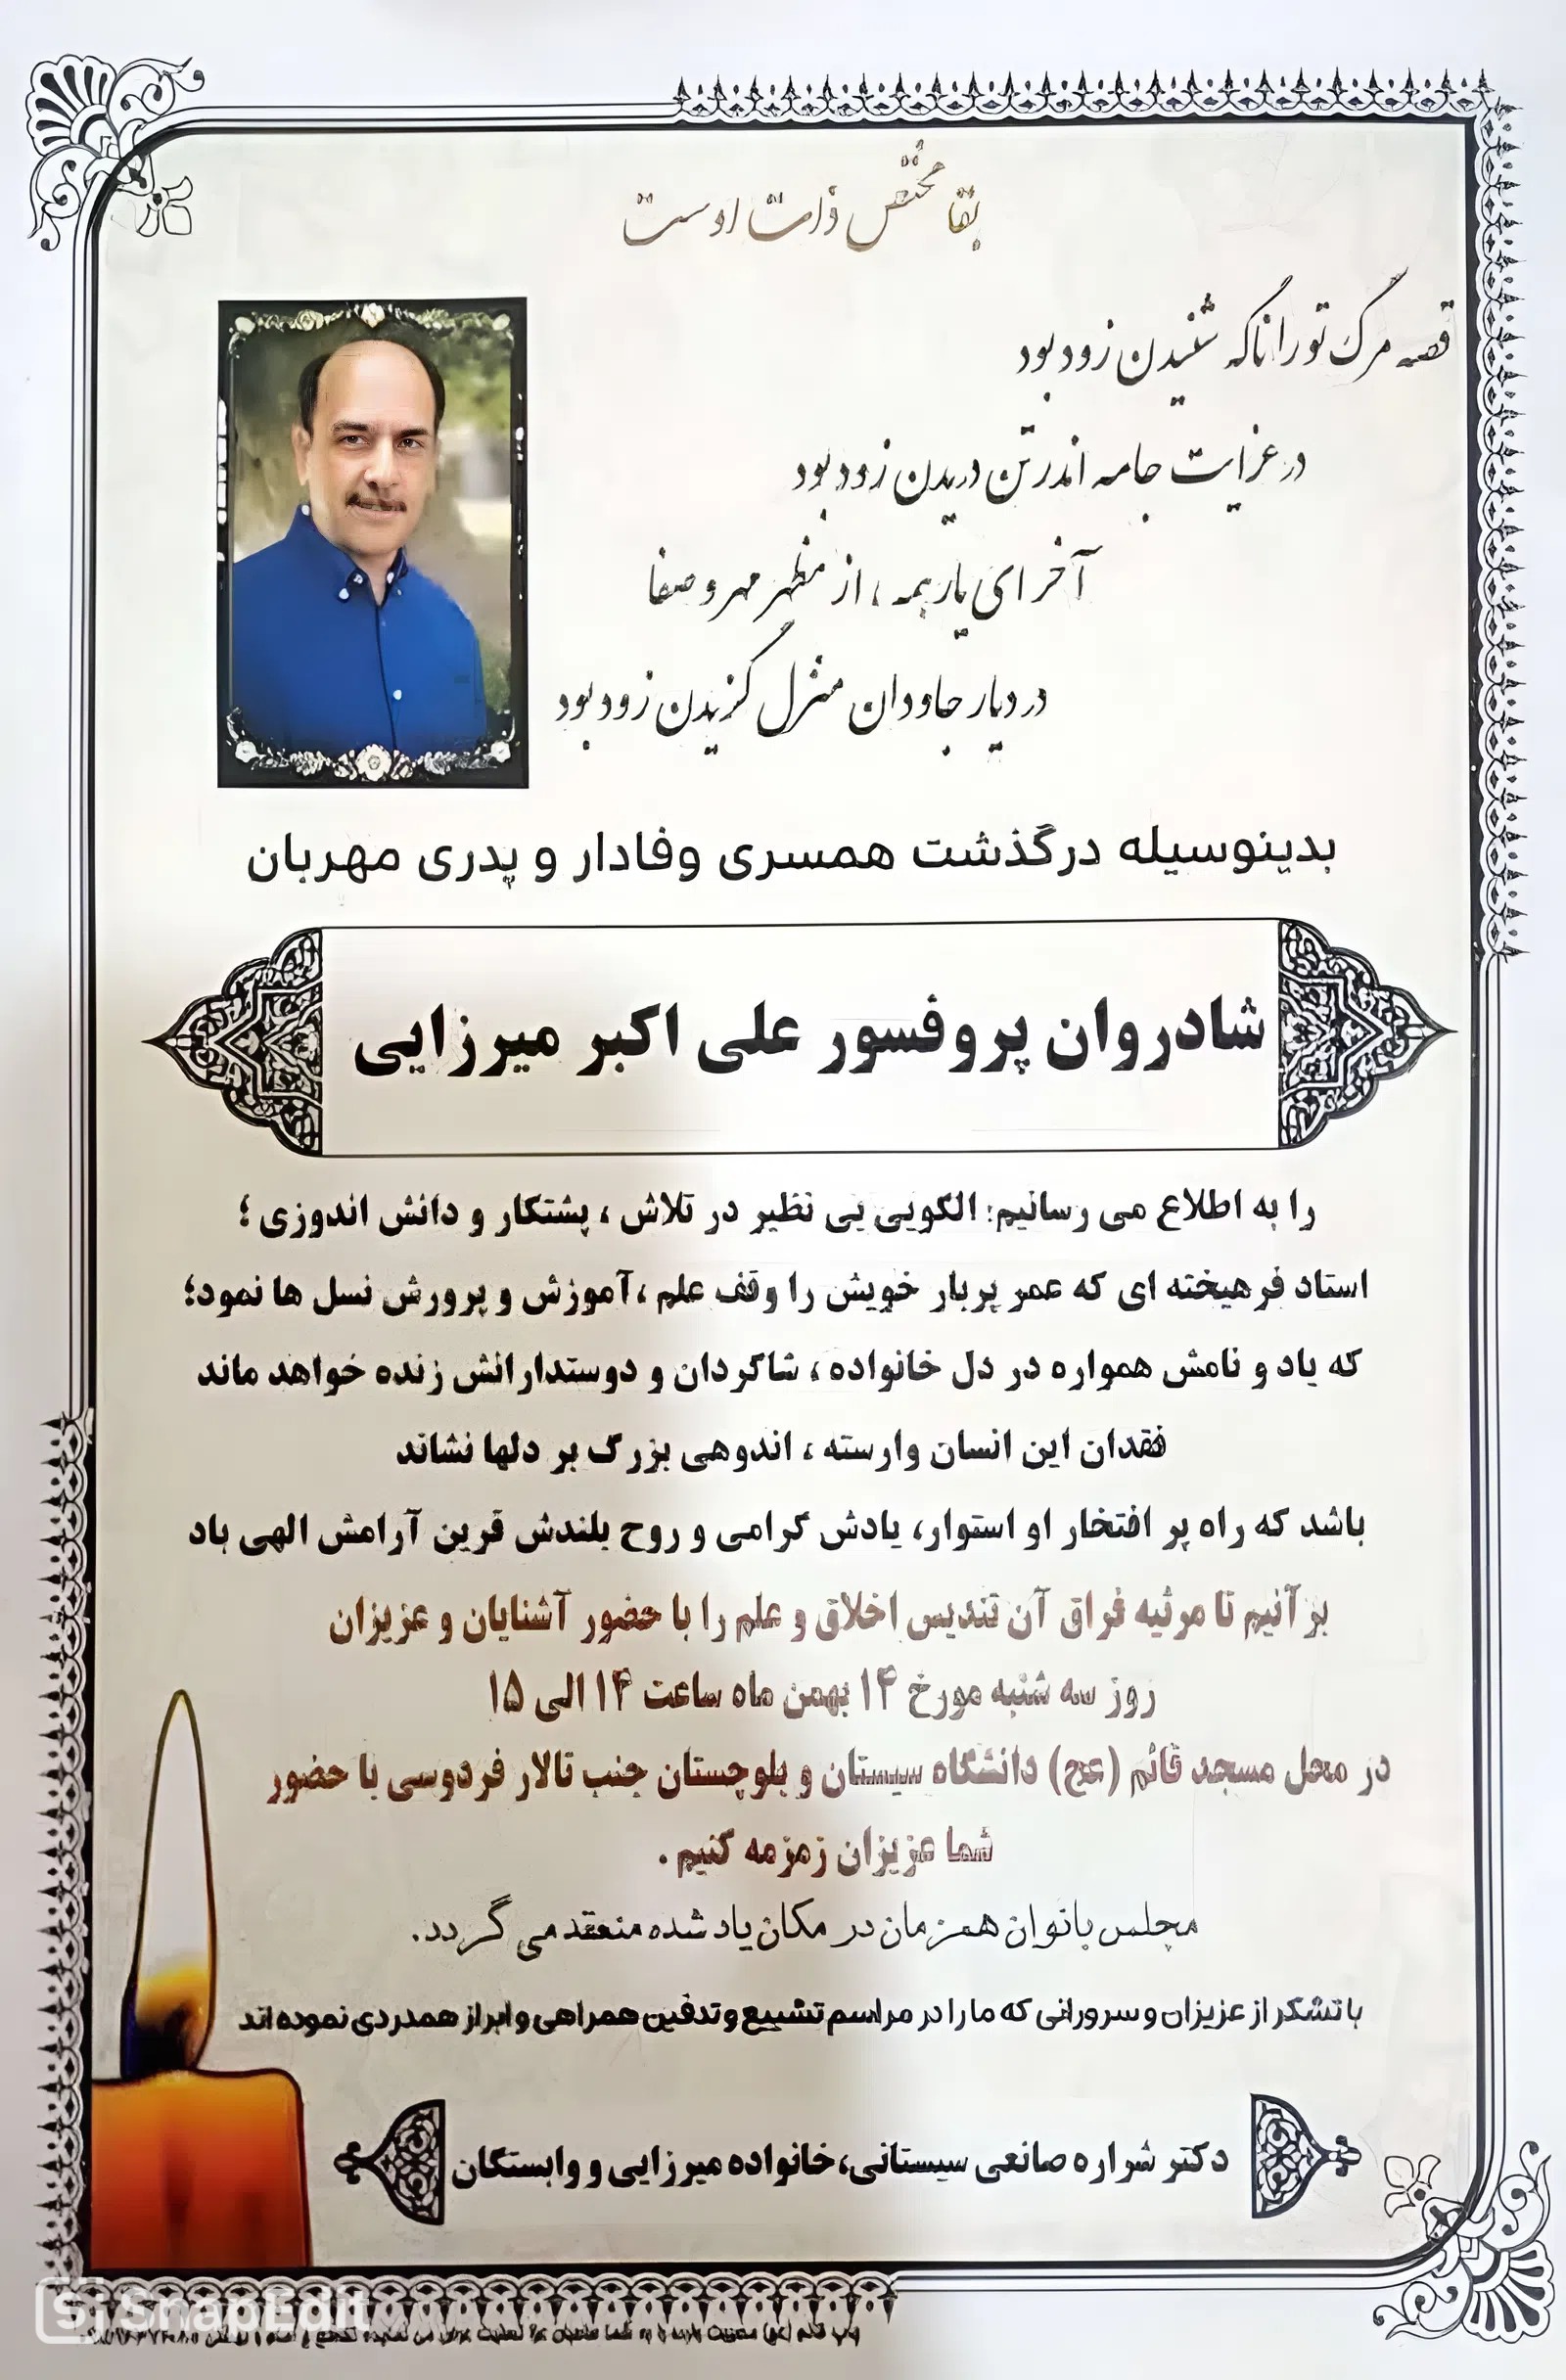 بقا مختص ذات اوست
قصه مرگ تو را ناگه شنیدن زود بود
در عزایت جامه اندر تن دریدن زود بود
آخر ای یار همه ، از مظهر مهر و صفا
در دیار جاودان منزل گزیدن زود بود
بدینوسیله درگذشت همسری وفادار و پدری مهربان
شادروان پروفسور علی اکبر میرزایی
را به اطلاع می رسانیم: الگویی بی نظیر در تلاش ، پشتکار و دانش اندوزی ؛
استاد فرهیخته ای که عمر پربار خویش را وقف علم ،آموزش و پرورش نسل ها نمود؛
که یاد و نامش همواره در دل خانواده ، شاگردان و دوستدارانش زنده خواهد ماند
فقدان این انسان وارسته ، اندوهی بزرگ بر دلها نشاند
باشد که راه پر افتخار او استوار، یادش گرامی و روح بلندش قرین آرامش الهی باد
بر آنیم تا مرثیه فراق آن تندیس اخلاق و علم را با حضور آشنایان و عزیزان
روز سه شنبه مورخ ۱۴ بهمن ماه ساعت ۱۴ الی ۱۵
در محل مسجد قائم (عج) دانشگاه سیستان و بلوچستان جنب تالار فردوسی با حضور
شما عزیزان زمزمه کنیم .
مجلس بانوان همزمان در مکان یاد شده منعقد می گردد.
با تشکر از عزیزان و سرورانی که ما را در مراسم تشییع و تدفین همراهی و ابراز همدردی نموده اند
دکتر شراره صانعی سیستانی، خانواده میرزایی و وابستگان
SnapEdit